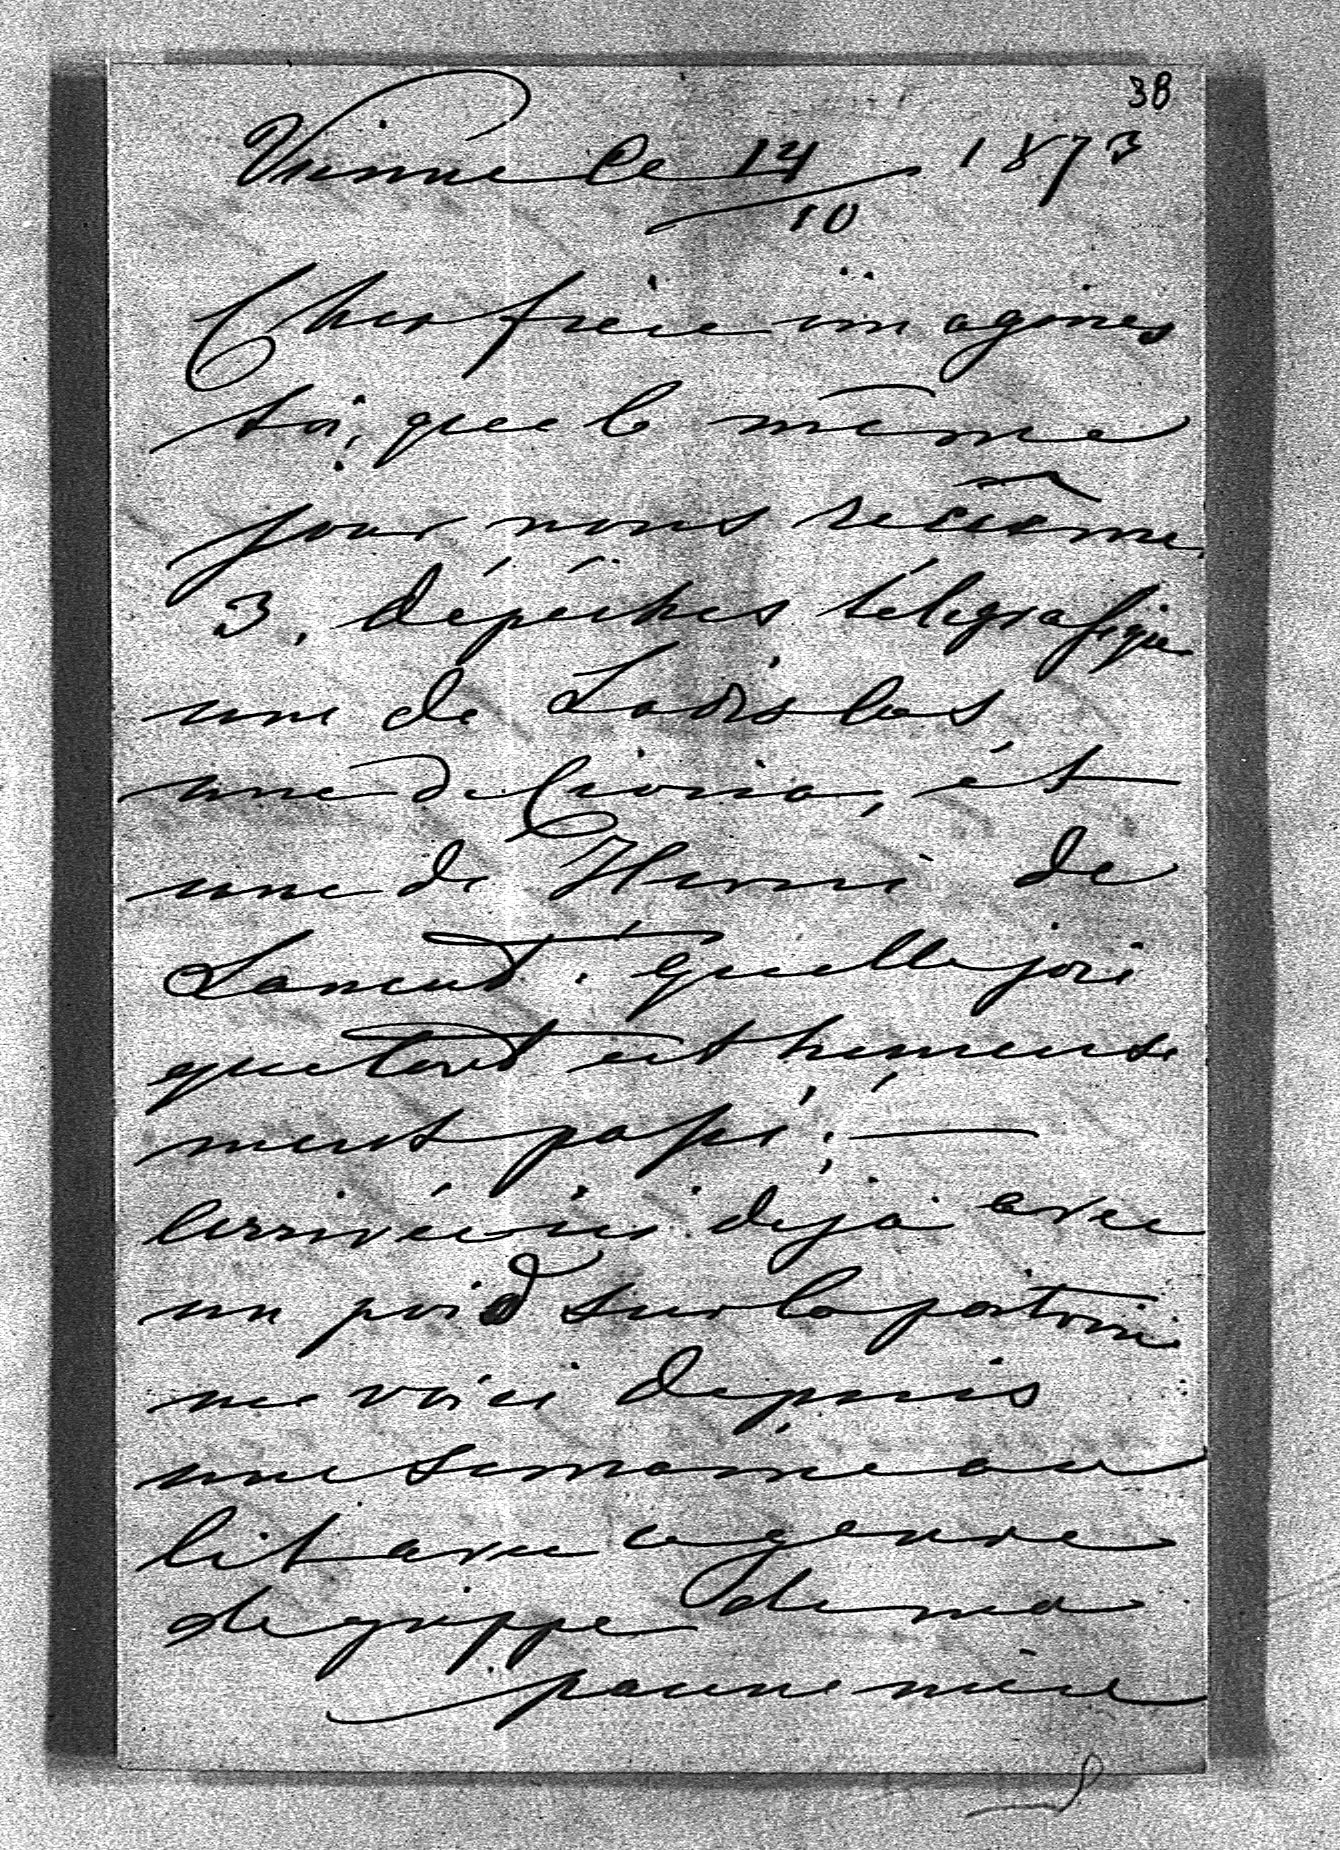 38
Vienne le 14/10 1873
Cher frère imagines
toi, que le même
jour nous recûme
3. dépéches télégrafique
une de Ladislas
une de Civonia, ét
une de Henri de
Lancut. quelle joie
que tout est heureuse
ment passé; —
arrivée ici deja avec
un poid sur la poitrine
me voici depuis
une semaine au
lit avec ce genre
de grippe de ma
pauvre mère